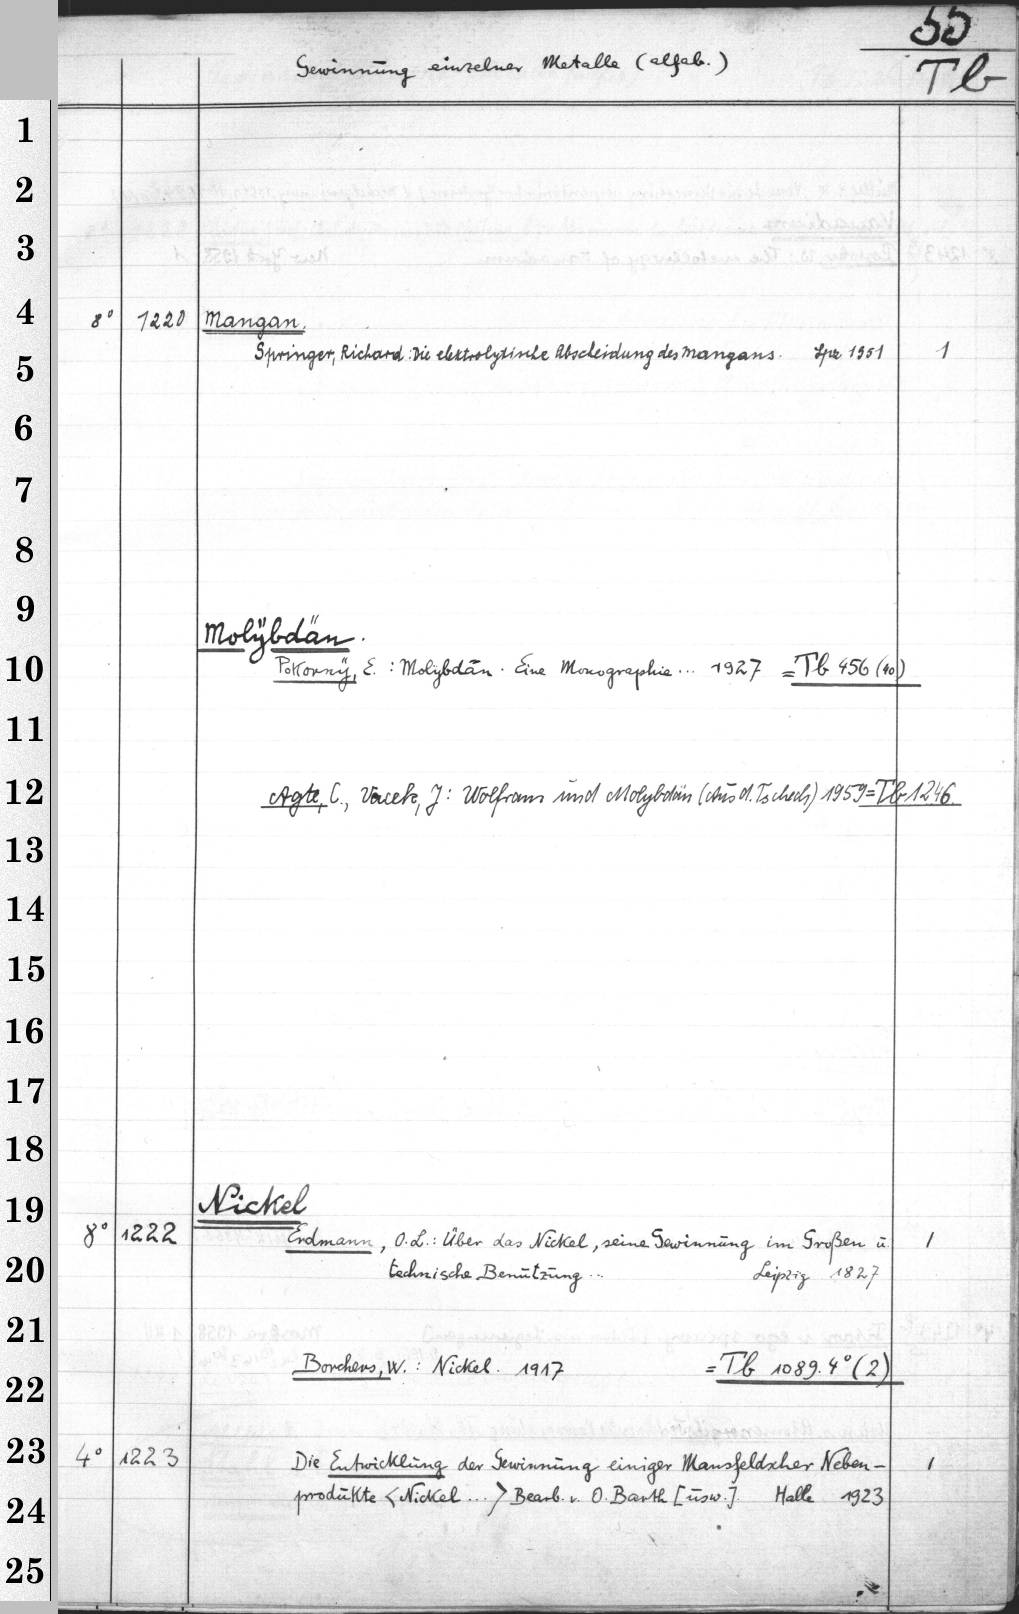 55
Gewinnung einzelner Metalle (alfab.)
Tb
1
2
3
4
8° 1220 Mangan.
Springer, Richard: Die elektrolytische Abscheidung des Mangans. Lpz 1951 1
5
6
7
8
9
Molÿbdän.
10
Pokornÿ, E.: Molybdän. Eine Monographie... 1927 = Tb 456 (40)
11
12
Agte, C., Vacek, J: Wolfram und Molybdän (Aus d. Tschech) 1959 = Tb 1246.
13
14
15
16
17
18
19
Nickel
8° 1222 Erdmann, O.L.: Über das Nickel, seine Gewinnung im Großen u. 1
20
technische Benutzung... Leipzig 1827
21
Borchers, W.: Nickel. 1917 = Tb 1089.4° (2)
22
23
4° 1223 Die Entwicklung der Gewinnung einiger Mansfeldscher Neben- 1
produkte <Nickel ...> Bearb. v. O. Barth [usw.]. Halle 1923
24
25